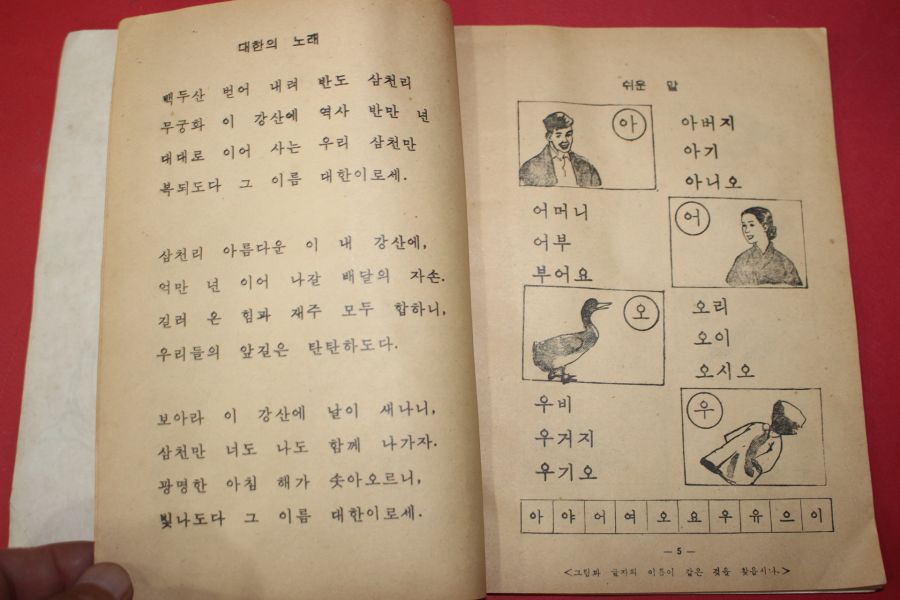 대한의 노래
백두산 벋어 내려 반도 삼천리
무궁화 이 강산에 역사 반만 년
대대로 이어 사는 우리 삼천만
복되도다 그 이름 대한이로세.
삼천리 아름다운 이 내 강산에,
억만 년 이어 나갈 배달의 자손.
길러 온 힘과 재주 모두 합하니,
우리들의 앞길은 탄탄하도다.
보아라 이 강산에 날이 새나니,
삼천만 너도 나도 함께 나가자.
광명한 아침 해가 솟아오르니,
빛나도다 그 이름 대한이로세.
쉬운 말
아
아버지
아기
아니오
어머니
어부
부어요
어
오
오리
오이
오시오
우비
우거지
우기오
우
아 야 어 여 오 요 우 유 으 이
— 5 —
<그림과 글자의 이름이 같은 것을 찾읍시다.>